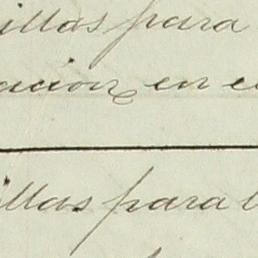 illas para
ación en e
illas para l